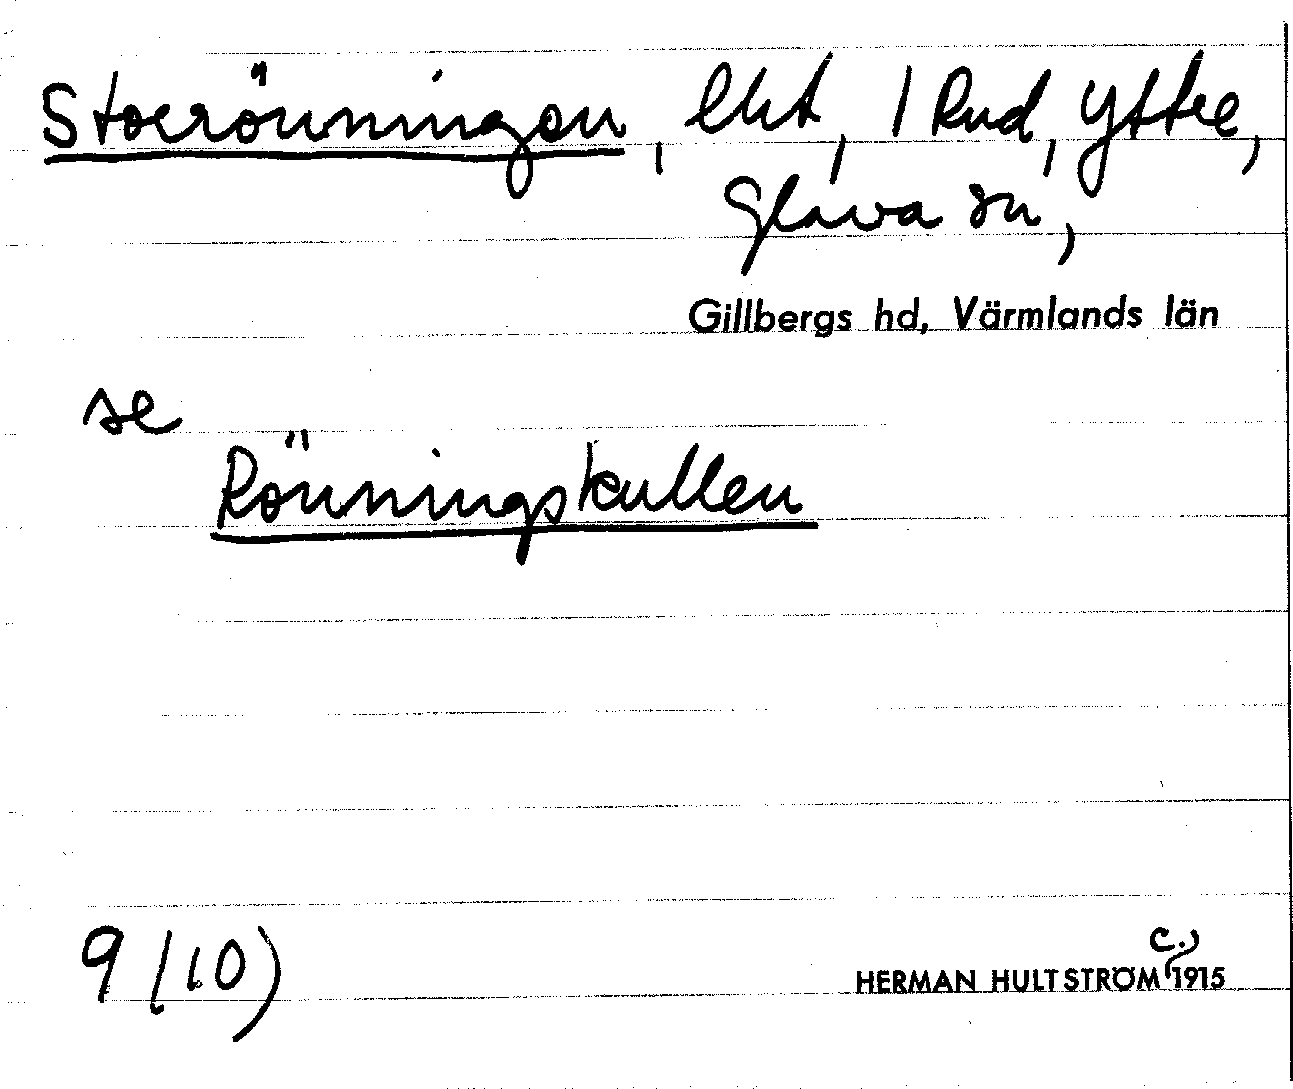 Storrönningen, lht, 1 Rud, Yttre,
Glava sn,
Gillbergs hd, Värmlands län
se
Rönningskullen
9 (10)
c.
HERMAN HULTSTRÖM 1915